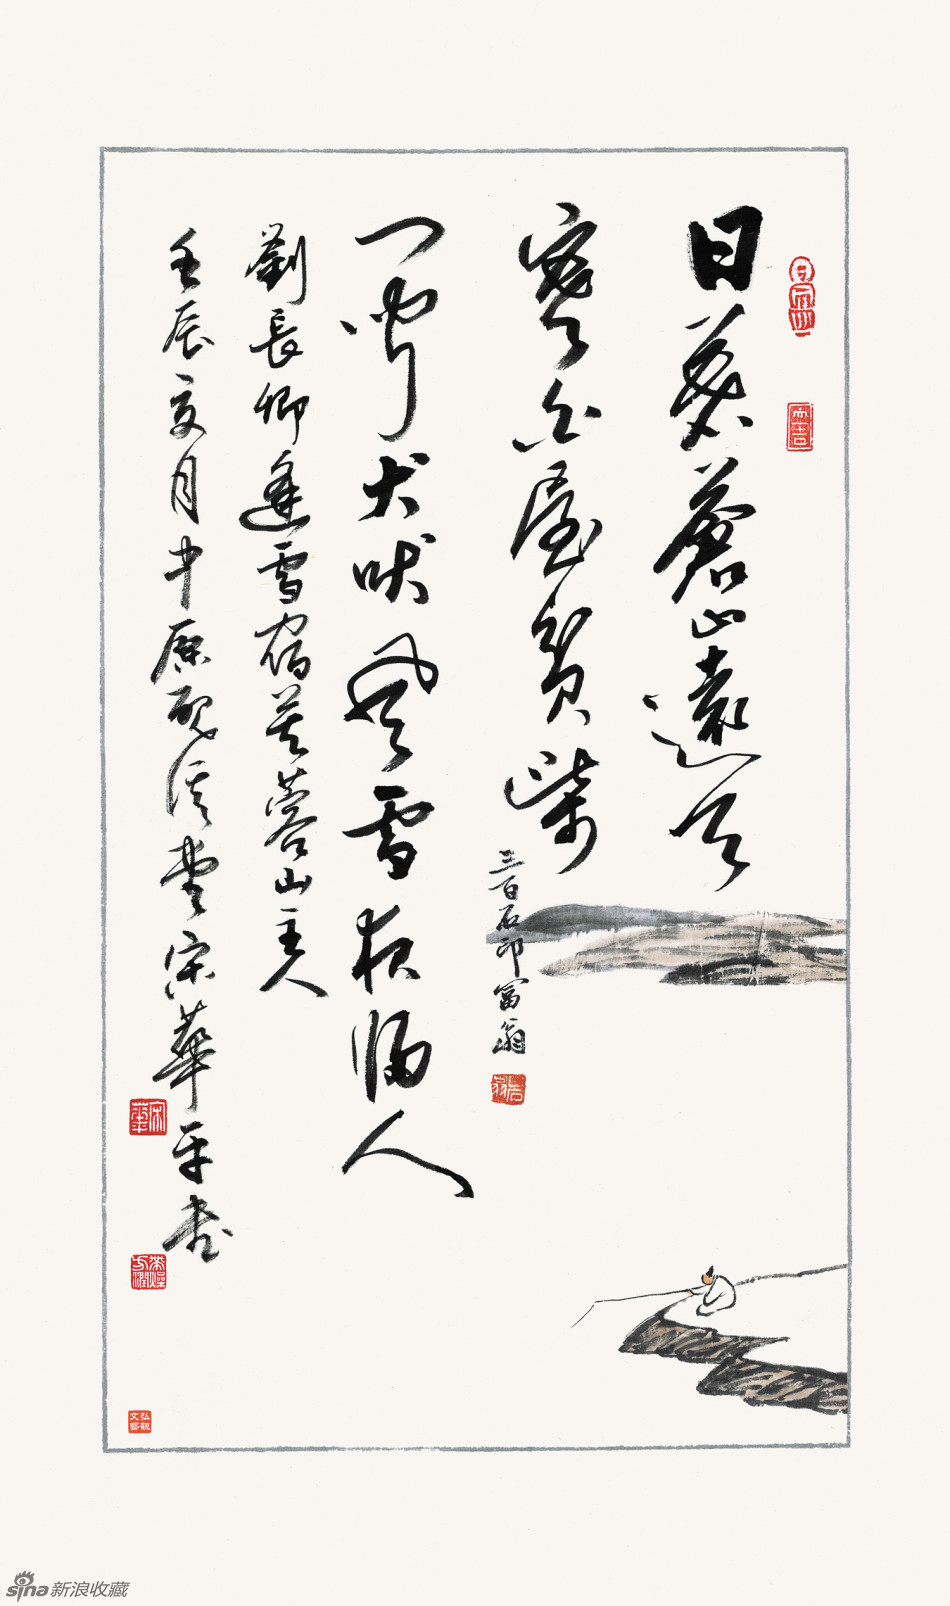 日暮蒼山遠天
寒白屋貧柴
門聞犬吠風雪夜歸人
劉長卿逢雪宿芙蓉山主人
壬辰亥月中原溪堂宋華平書
三百石印富翁
sina新浪收藏